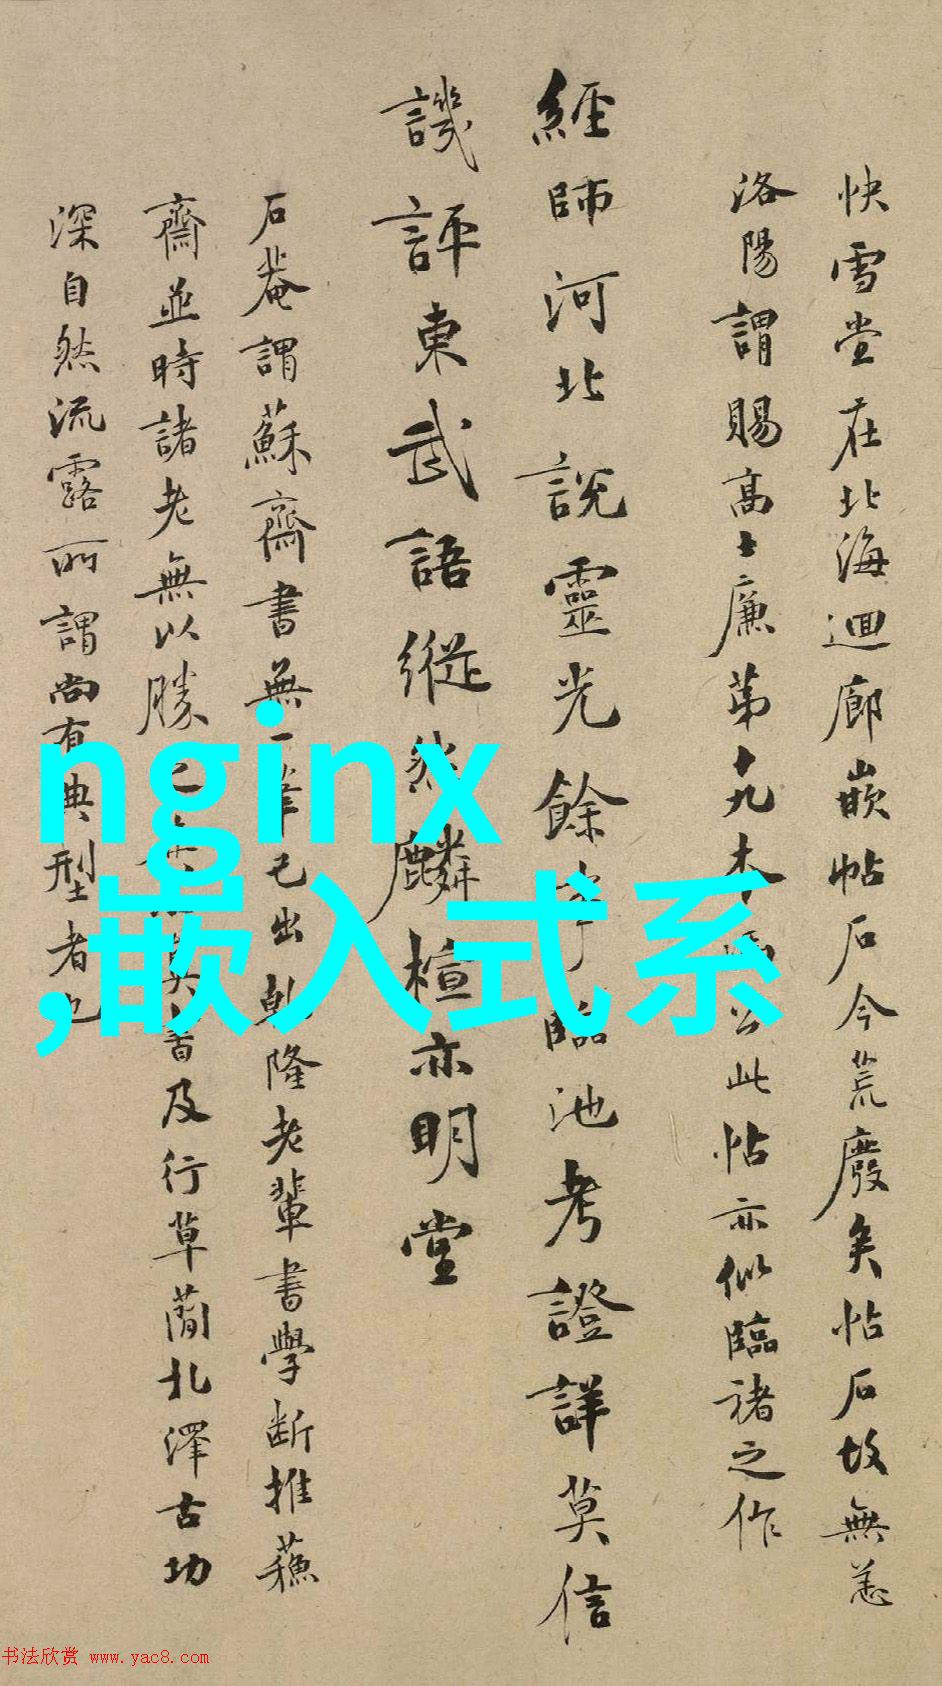 快雪堂在北海迴廊嵌帖石今荒廢矣帖石故無恙
洛陽謂賜高士廉第十九本馮公此帖亦似臨褚之作
經師河北說靈光餘事臨池考證詳莫信
譏評東武語縱然麟楦亦明堂
石菴謂蘇齋書無一筆己出乾隆老輩書學斷推蘇
齋並時諸老無以勝之
書及行草蘭北澤古功
深自然流露所謂尚有典型者也
nginx
,嵌入式系
书法欣赏 www.yac8.com